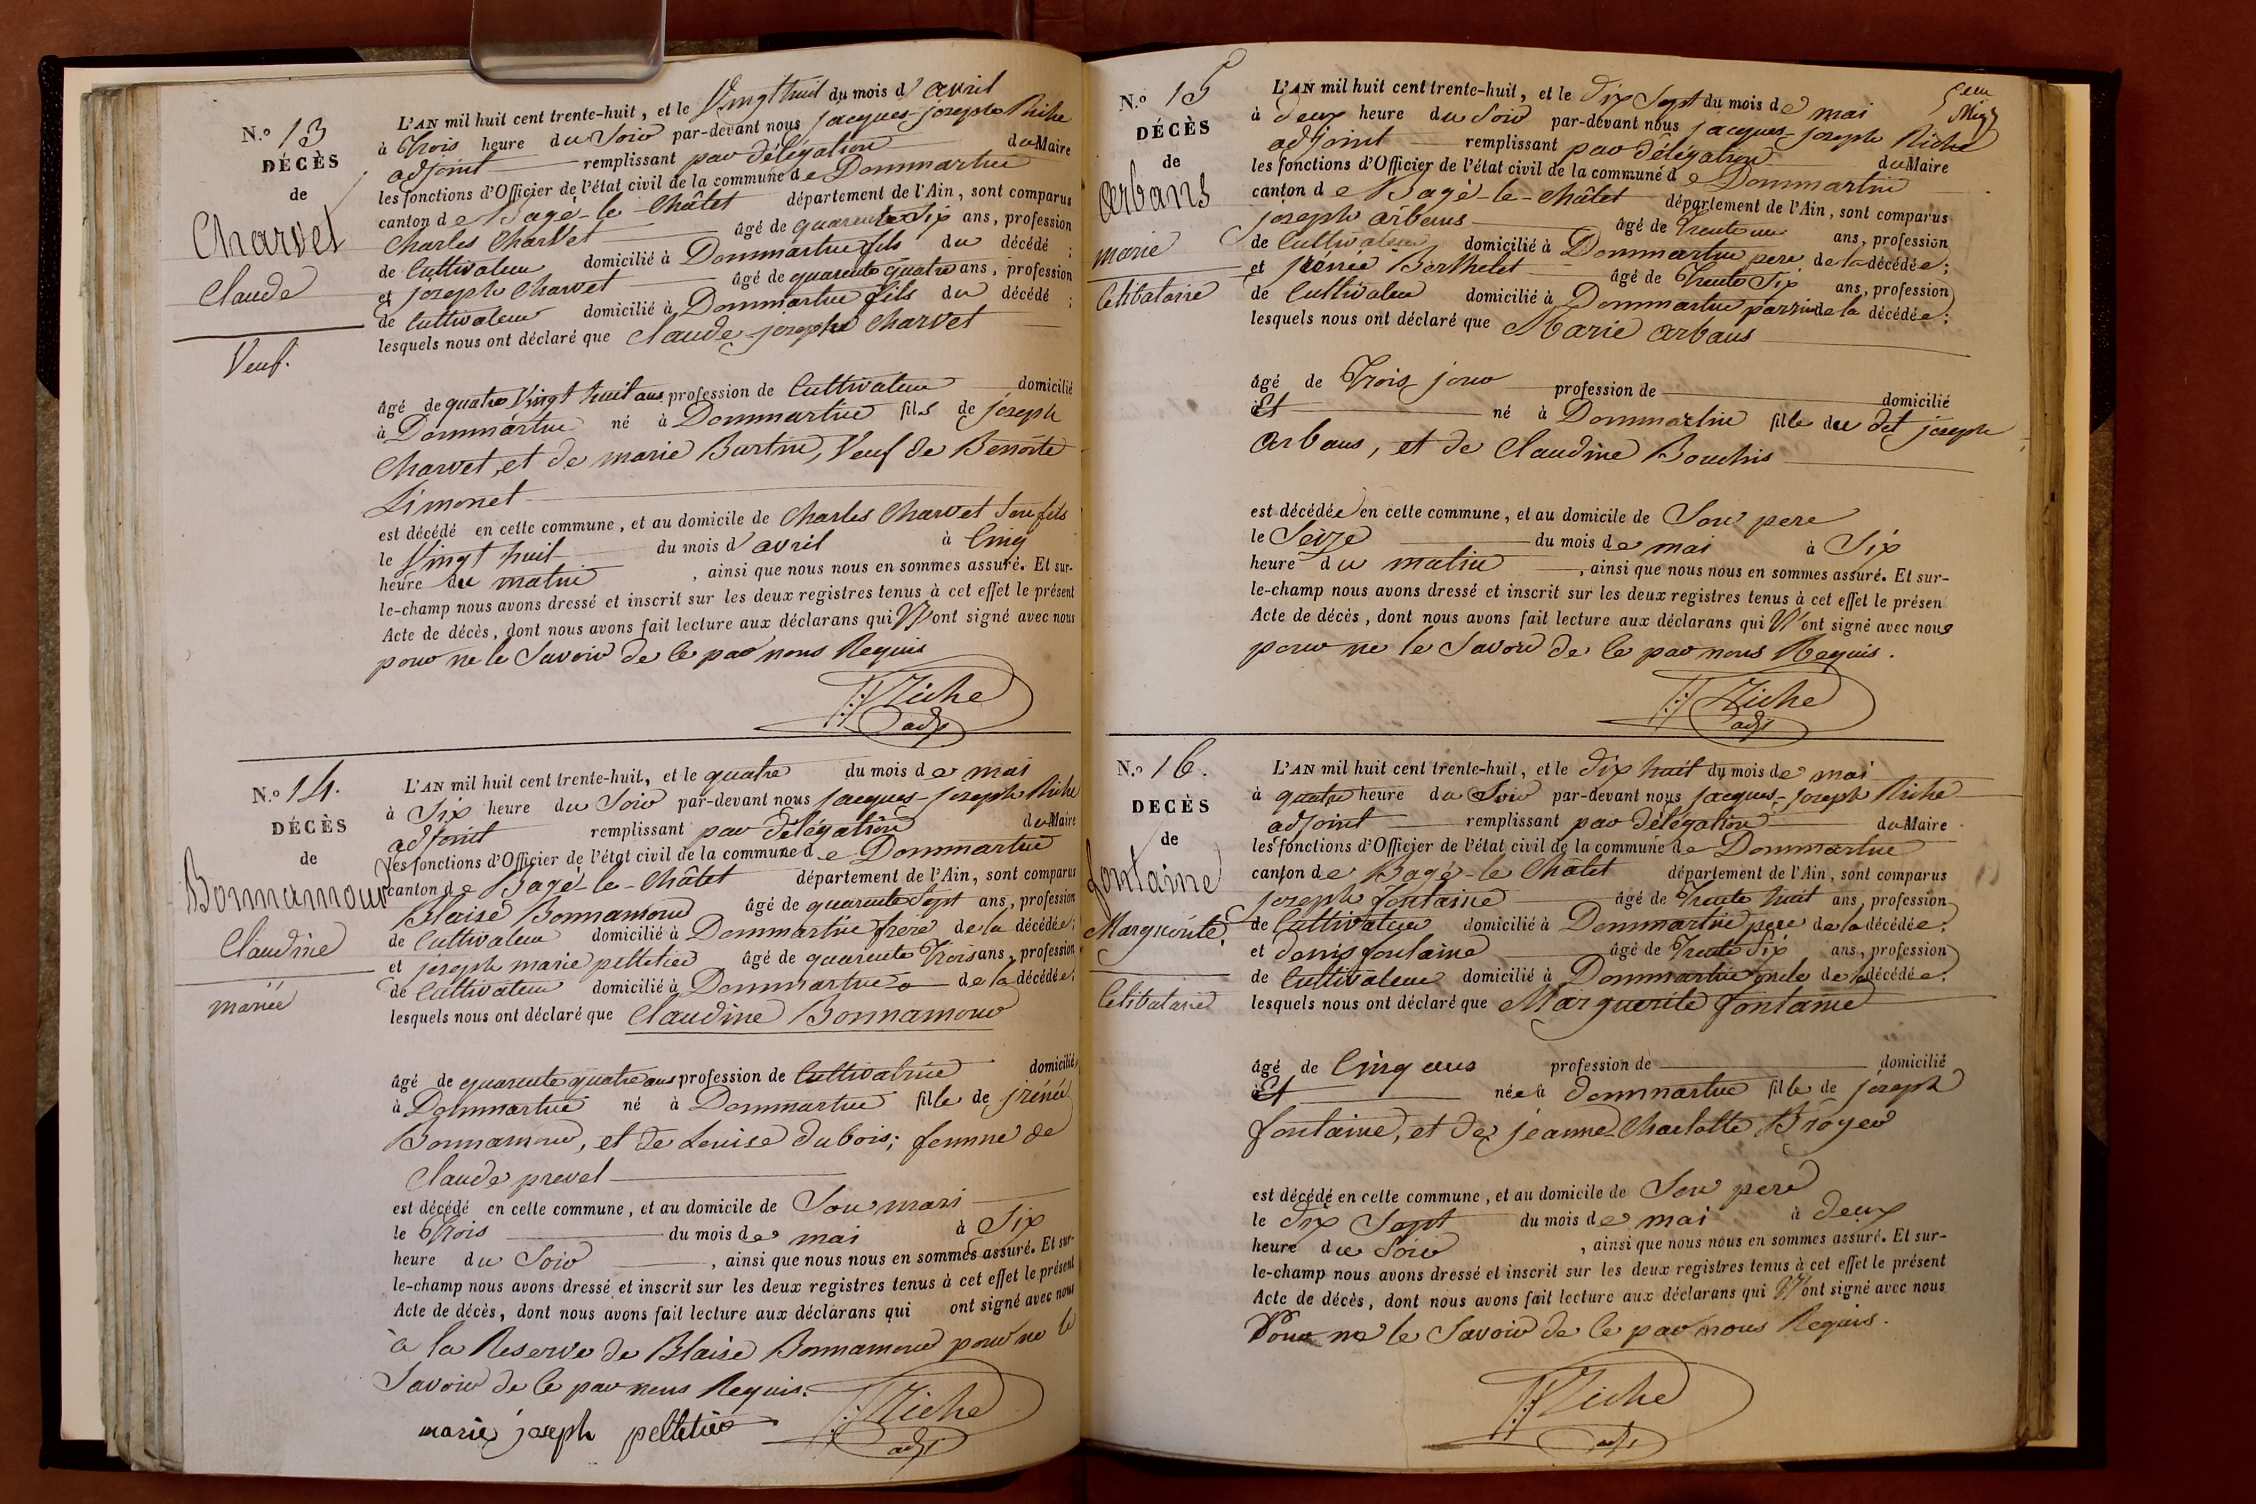 N.º 13
DÉCÈS
de
Charvet
Claude
Veuf.
L'AN mil huit cent trente-huit, et le Vingt huit du mois d'avril
à Trois heure du Soir par-devant nous jacques-joseph Riche
adjoint remplissant par délégation du Maire
les fonctions d'Officier de l'état civil de la commune de Dommartin
canton de Bagé-le-Châtel département de l'Ain, sont comparus
Charles Charvet âgé de quarante Six ans, profession
de Cultivateur domicilié à Dommartin fils du décédé ;
et joseph Charvet âgé de quarente quatre ans, profession
de Cultivateur domicilié à Dommartin fils du décédé ;
lesquels nous ont déclaré que Claude-joseph Charvet
âgé de quatre Vingt huit ans profession de Cultivateur domicilié
à Dommartin né à Dommartin fils de joseph
Charvet, et de marie Burtin, Veuf de Benoite
Limonet
est décédé en cette commune, et au domicile de Charles Charvet Son fils
le Vingt huit du mois d'avril à Cinq
heure du matin, ainsi que nous nous en sommes assuré. Et sur-
le-champ nous avons dressé et inscrit sur les deux registres tenus à cet effet le présent
Acte de décès, dont nous avons fait lecture aux déclarans qui N'ont signé avec nous
pour ne le Savoir de ce par nous Requis
J:J: Riche
adj
N.º 14.
DÉCÈS
de
Bonnamour
Claudine
mariée
L'AN mil huit cent trente-huit, et le quatre du mois de mai
à Six heure du Soir par-devant nous jacques-joseph Riche
adjoint remplissant par délégation du Maire
les fonctions d'Officier de l'état civil de la commune de Dommartin
canton de Bagé-le-Châtel département de l'Ain, sont comparus
Blaise Bonnamour âgé de quarente Sept ans, profession
de Cultivateur domicilié à Dommartin frere de la décédée ;
et joseph marie pelletier âgé de quarente Trois ans, profession
de Cultivateur domicilié à Dommartin de la décédée ;
lesquels nous ont déclaré que Claudine Bonnamour
âgé de quarente quatre ans profession de Cultivatrice domicilié
à Dommartin né à Dommartin fille de jrénée
Bonnamour, et de Louise dubois; femme de
Claude prevel
est décédé en cette commune, et au domicile de Son mari
le Trois du mois de mai à Six
heure du Soir, ainsi que nous nous en sommes assuré. Et sur-
le-champ nous avons dressé et inscrit sur les deux registres tenus à cet effet le présent
Acte de décès, dont nous avons fait lecture aux déclarans qui ont signé avec nous
à la Reserve de Blaise Bonnamour pour ne le
Savoir de ce par nous Requis.
J:J: Riche
marie joseph pelletier
adj
N.º 15
DÉCÈS
de
Arbans
marie
Celibataire
L'AN mil huit cent trente-huit, et le dix Sept du mois de mai
à deux heure du Soir par-devant nous jacques-joseph Riche
adjoint remplissant par délégation du Maire
les fonctions d'Officier de l'état civil de la commune de Dommartin
canton de Bagé-le-Châtel département de l'Ain, sont comparus
joseph Arbans âgé de Trente un ans, profession
de Cultivateur domicilié à Dommartin pere de la décédée ;
et jrénée Berthelet âgé de Trente Six ans, profession
de Cultivateur domicilié à Dommartin parrin de la décédée ;
lesquels nous ont déclaré que Marie Arbans
âgé de Trois jour profession de domicilié
à Et né à Dommartin fille du dit joseph
Arbans, et de Claudine Bouchis
est décédée en cette commune, et au domicile de Son pere
le Seize du mois de mai à Six
heure du matin, ainsi que nous nous en sommes assuré. Et sur-
le-champ nous avons dressé et inscrit sur les deux registres tenus à cet effet le présen
Acte de décès, dont nous avons fait lecture aux déclarans qui N'ont signé avec nous
pour ne le Savoir de ce par nous Requis.
J:J: Riche
adj
N.º 16.
DECÈS
de
fontaine
Marguerite.
Celibataire
L'AN mil huit cent trente-huit, et le dix huit du mois de mai
à quatre heure du Soir par-devant nous jacques-joseph Riche
adjoint remplissant par délégation du Maire
les fonctions d'Officier de l'état civil de la commune de Dommartin
canton de Bagé-le Châtel département de l'Ain, sont comparus
joseph fontaine âgé de Trente huit ans, profession
de Cultivateur domicilié à Dommartin pere de la décédée ;
et denis fontaine âgé de Trente Six ans, profession
de Cultivateur domicilié à Dommartin oncle de la décédée ;
lesquels nous ont déclaré que Marguerite fontaine
âgé de Cinq ans profession de domicilié
à Et née à dommartin fille de joseph
fontaine, et de jeanne-Charlotte Broyer
est décédé en cette commune, et au domicile de Son pere
le dix Sept du mois de mai à deux
heure du Soir, ainsi que nous nous en sommes assuré. Et sur-
le-champ nous avons dressé et inscrit sur les deux registres tenus à cet effet le présent
Acte de décès, dont nous avons fait lecture aux déclarans qui N'ont signé avec nous
Pour ne le Savoir de ce par nous Requis.
J:J: Riche
adj